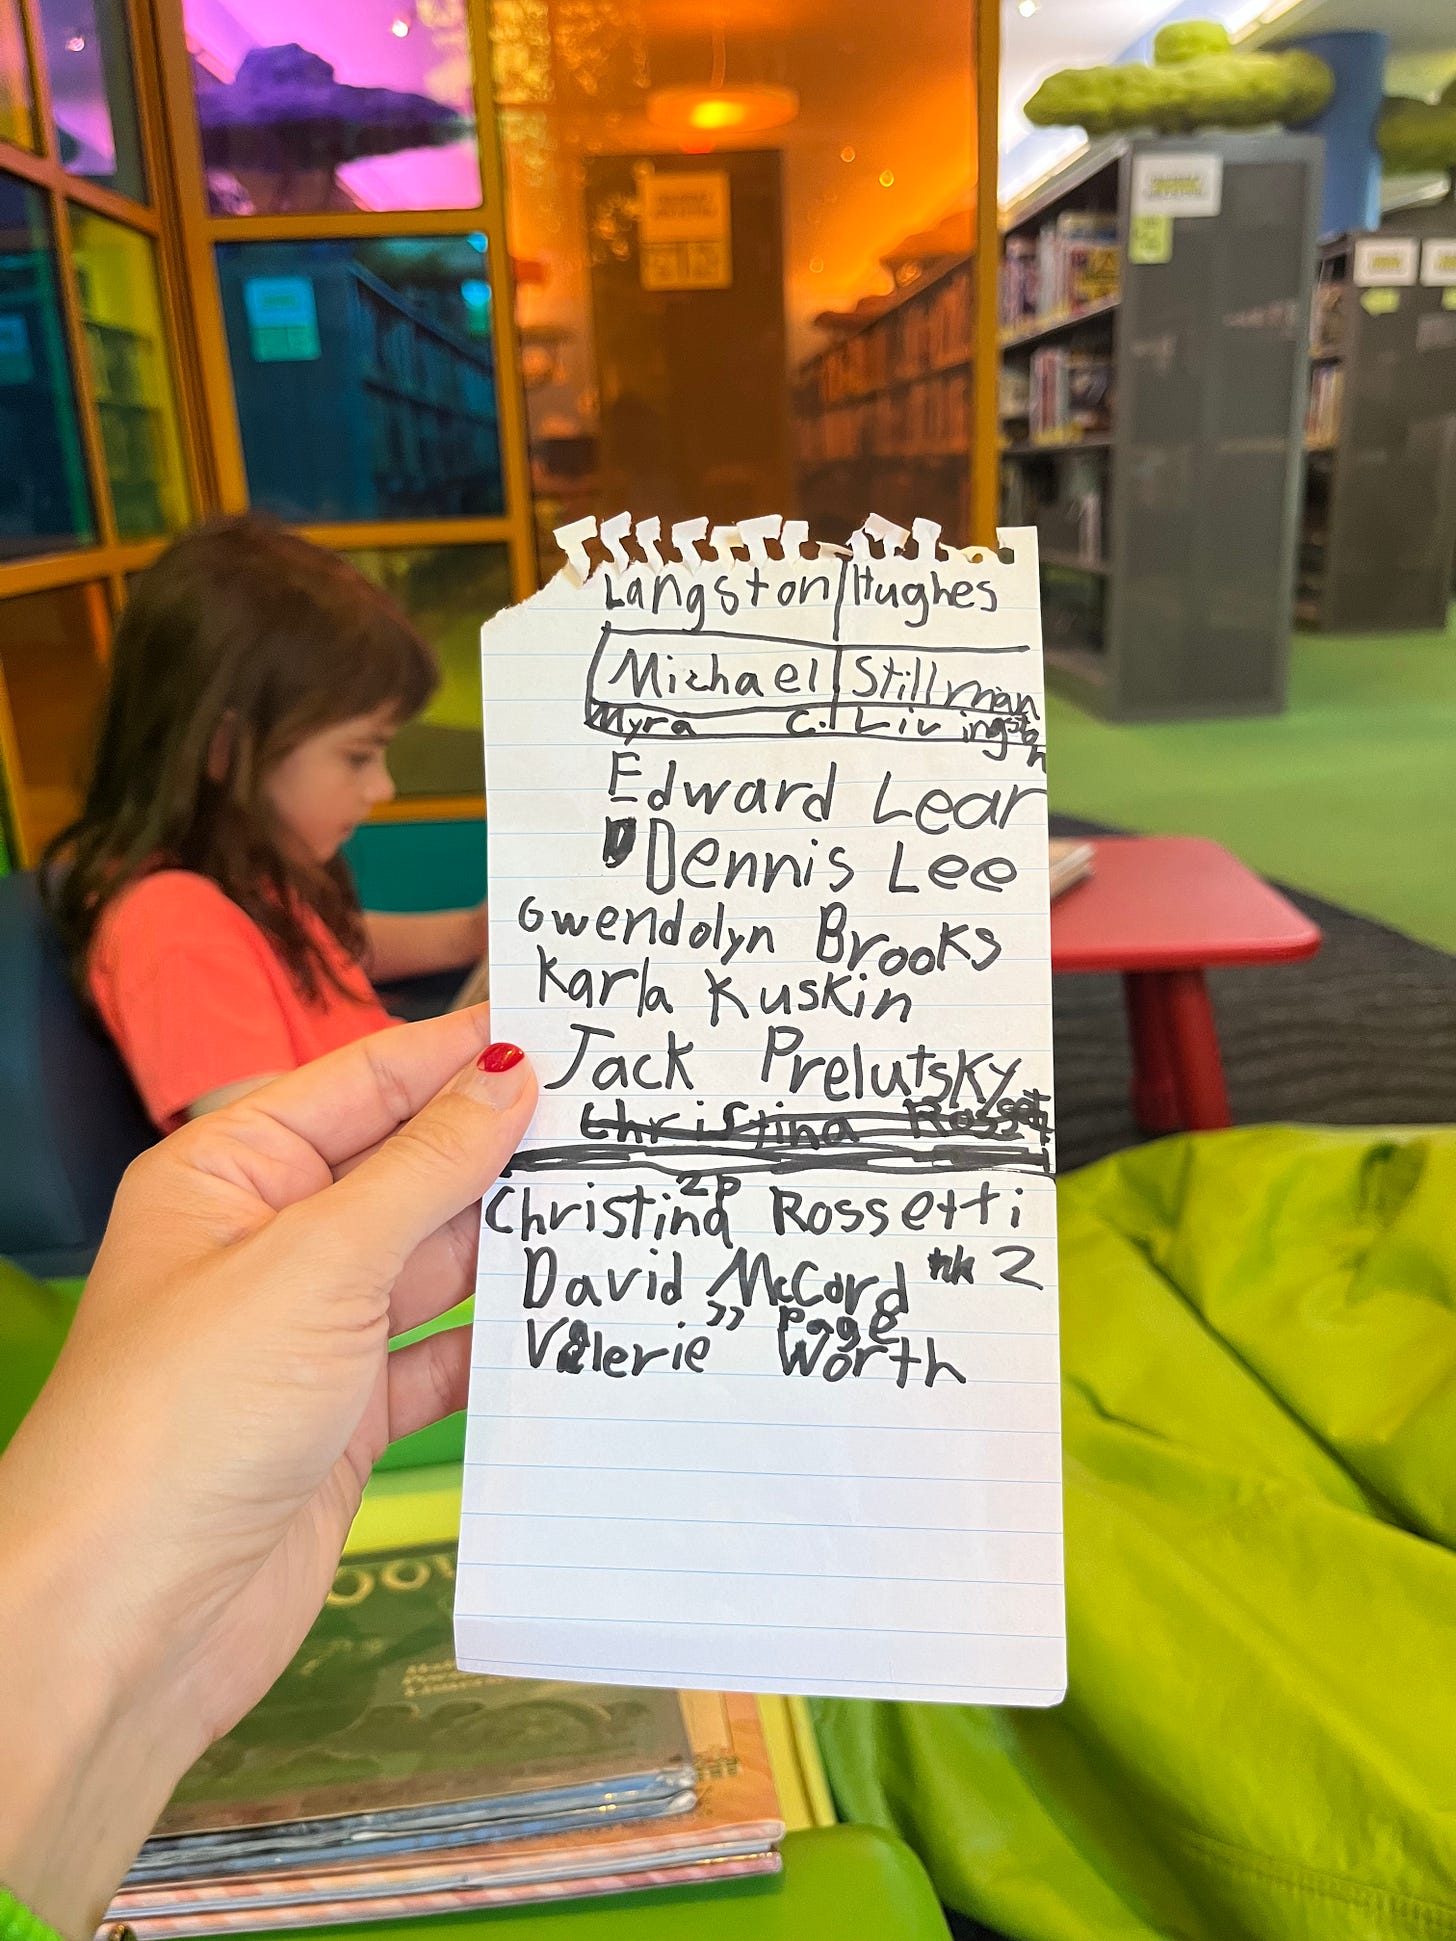 Langston Hughes
Michael Stillman
Myra C. Livingston
Edward Lear
Dennis Lee
Gwendolyn Brooks
Karla Kuskin
Jack Prelutsky
Christina Rosset
2p
Christina Rossetti
David McCord 2
" page
Valerie Worth